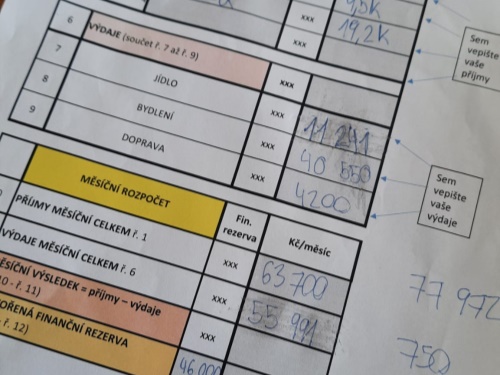 9,5K
xxx 19,2K
6 VÝDAJE (součet ř. 7 až ř. 9) xxx
7 JÍDLO xxx 11 241
8 BYDLENÍ xxx 40 550
9 DOPRAVA xxx 4200
Sem
vepište
vaše
příjmy
Sem
vepište
vaše
výdaje
MĚSÍČNÍ ROZPOČET Fin.
rezerva Kč/měsíc
PŘÍJMY MĚSÍČNÍ CELKEM ř. 1 xxx 63 700
VÝDAJE MĚSÍČNÍ CELKEM ř. 6 xxx 55 991
ĚSÍČNÍ VÝSLEDEK = příjmy – výdaje
10 - ř. 11) xxx
OŘENÁ FINANČNÍ REZERVA
ř. 12) 46 000
77 972
750